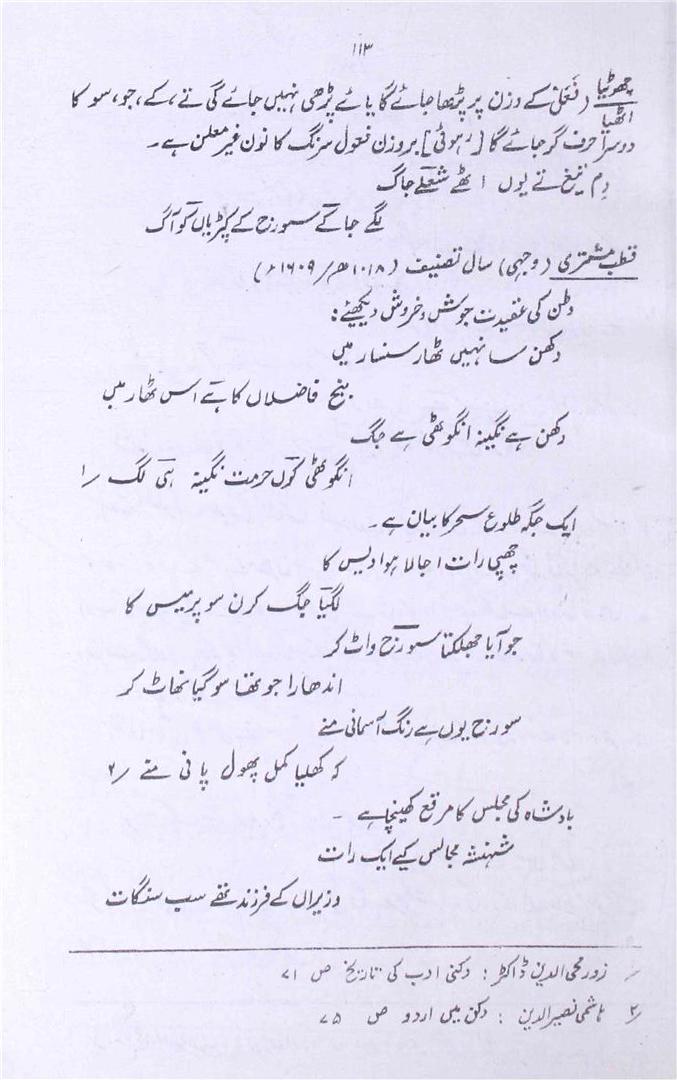 ۱۱۳
چھوٹیا
اٹھیا
( فَعَلُن کے وزن پر پڑھا جائے گا یائے پڑھی نہیں جائے گی تے، کے، جو، سو کا
دوسرا حرف گر جائے گا [رہوئی] بروزن فعول سرنگ کا نون غیر معلن ہے۔
دم تیغ تے یوں اٹھے شعلے جاگ
لگے جا کے سورج کے کپڑیاں کو آگ
قطب مشتری (وجہی) سال تصنیف (۱۰۱۸ھ/۱۶۰۹ء)
وطن کی عقیدت جوش و خروش دیکھیئے:
دکھن سا نہیں ٹھار سنسار میں
بنج فاضلاں کا ہے اس ٹھار میں
دکھن ہے نگینہ انگوٹھی ہے جگ
انگوٹھی کوں حرمت نگینہ ہی لگ ۱؎
ایک جگہ طلوع سحر کا بیان ہے۔
چھپی رات اجالا ہوا دیس کا
لگیا جگ کرن سو پرمیس کا
جو آیا جھلکتا سورج واٹ کر
اندھارا جو تھا سو گیا نھاٹ کر
سورج یوں ہے رنگ آسمانی منے
کہ کھلیا کمل پھول پانی منے ۲؎
بادشاہ کی مجلس کا مرقع کھینچا ہے۔
شہنشہ مجالس کیے ایک رات
وزیراں کے فرزند تھے سب سنگات
زور محی الدین ڈاکٹر : دکنی ادب کی تاریخ ص ۷۱
۲؎ ہاشمی نصیر الدین : دکن میں اردو ص ۷۵